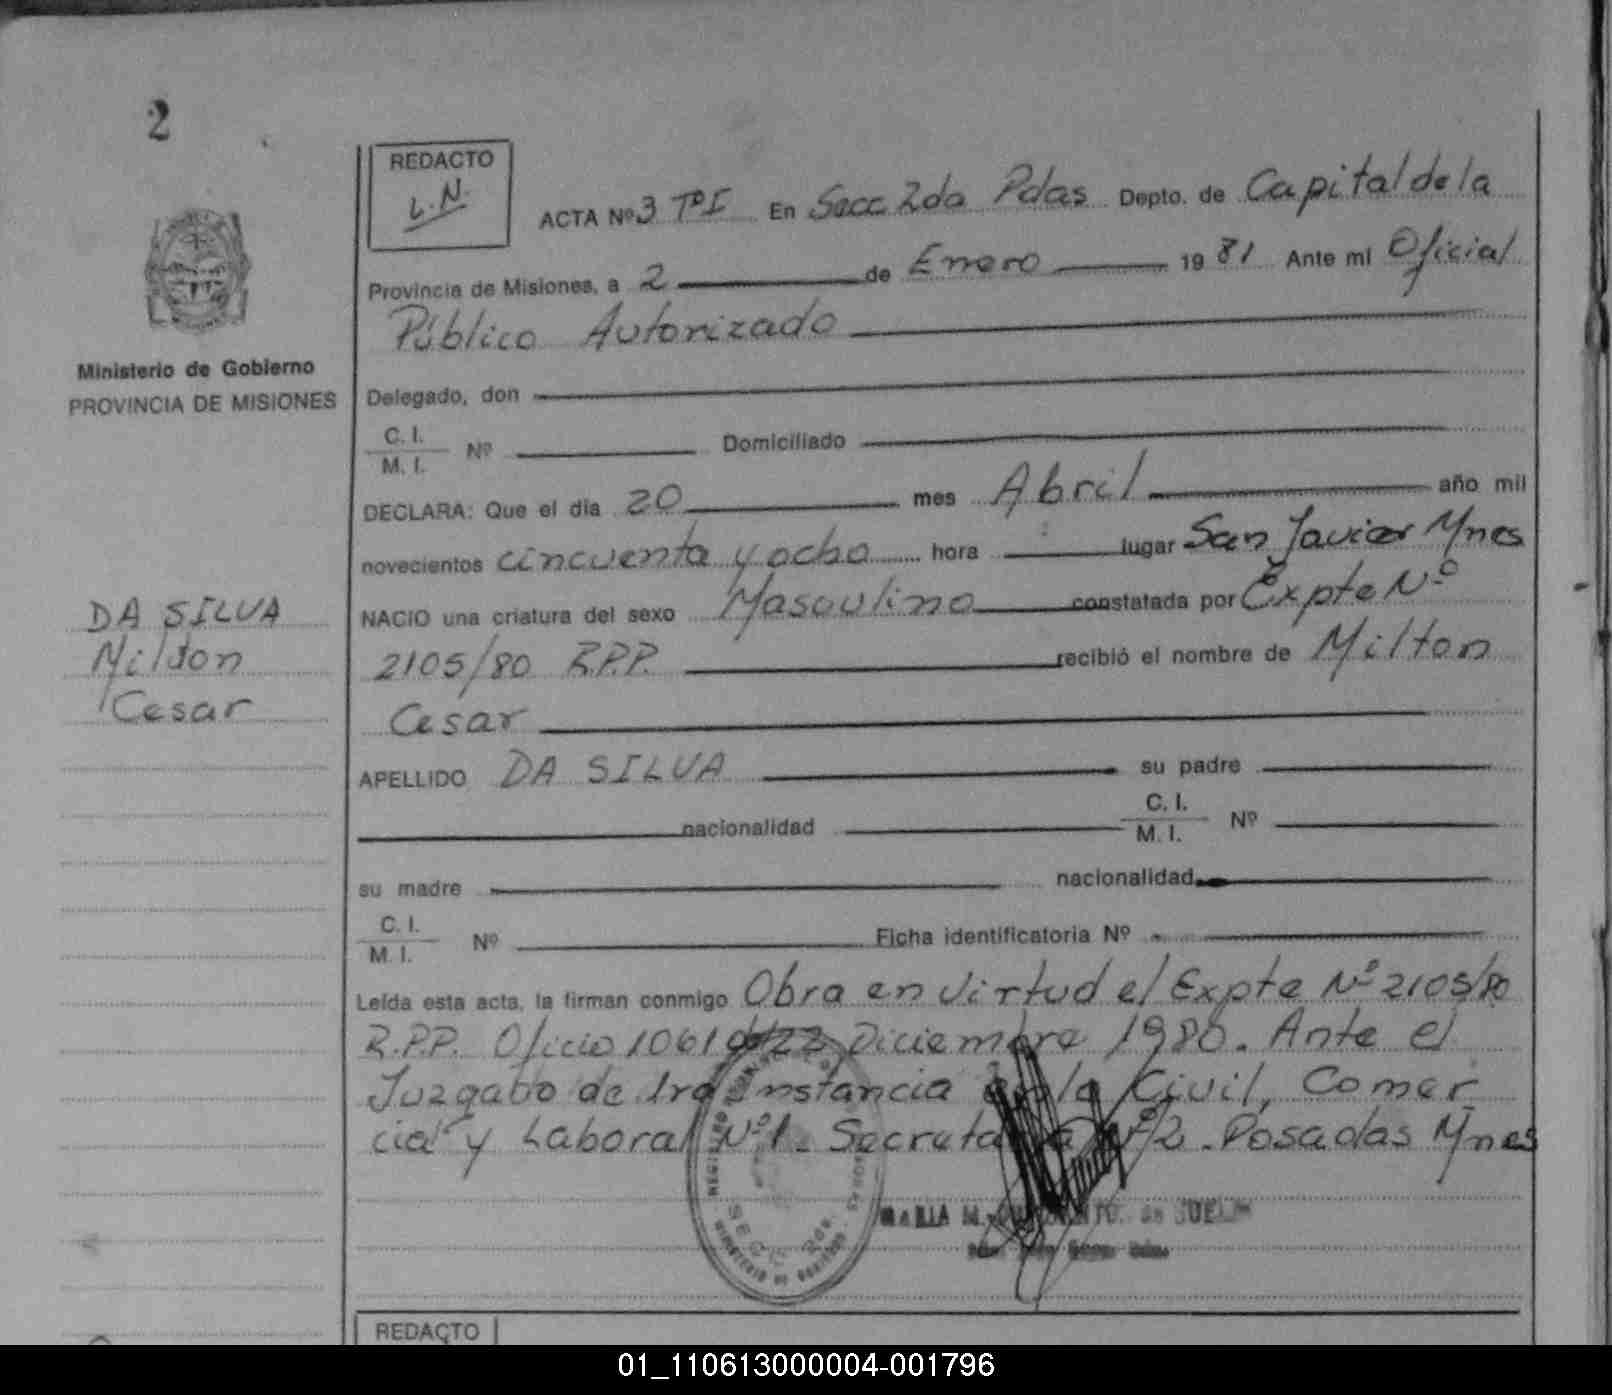 2
REDACTO
L.N.
ACTA Nº 3 TºI En Secc 2da Pdas Depto. de Capital de la
Provincia de Misiones, a 2 de Enero 1981 Ante mi Oficial
Público Autorizado
Ministerio de Gobierno
PROVINCIA DE MISIONES
Delegado, don
C. I.
M. I. Nº Domiciliado
DECLARA: Que el día 20 mes Abril año mil
novecientos cincuenta y ocho hora lugar San Javier Mnes
NACIO una criatura del sexo Masculino constatada por Expte Nº
2105/80 R.P.P. recibió el nombre de Milton
Cesar
DA SILVA
Milton
Cesar
APELLIDO DA SILVA su padre
nacionalidad C. I.
M. I. Nº
su madre nacionalidad
C. I.
M. I. Nº Ficha identificatoria Nº
Leída esta acta, la firman conmigo Obra en virtud el Expte Nº 2105/80
R.P.P. Oficio 1061 d/22 Diciembre 1980. Ante el
Juzgado de 1ra Instancia en lo Civil, Comer
cial y Laboral Nº 1. Secretaria Nº 2. Posadas Mnes
MARIA M. de
REDACTO
01_110613000004-001796